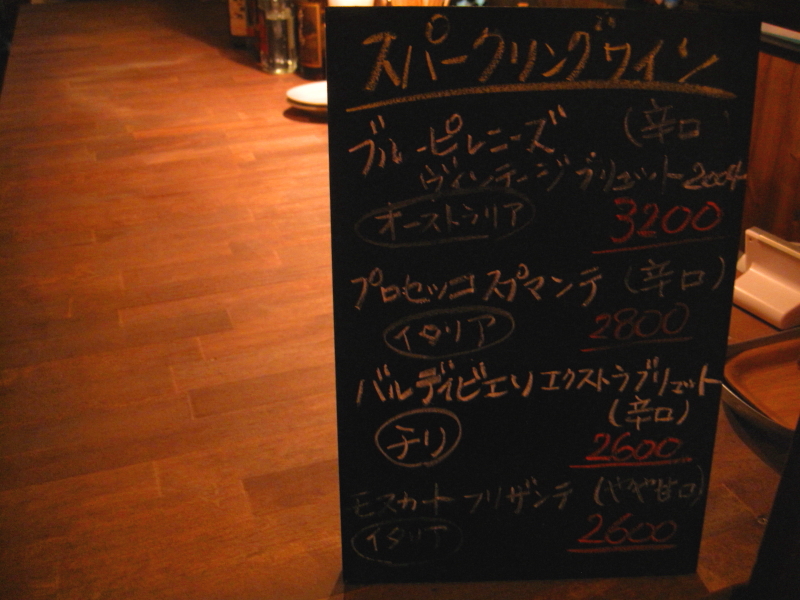 スパークリングワイン
ブルーピレニーズ (辛口
ヴィンテージ ブリュット 2004
オーストラリア 3200
プロセッコ スプマンテ (辛口)
イタリア 2800
バルディビエソ エクストラブリュット
(辛口)
チリ 2600
モスカート フリザンテ (やや甘口)
イタリア 2600